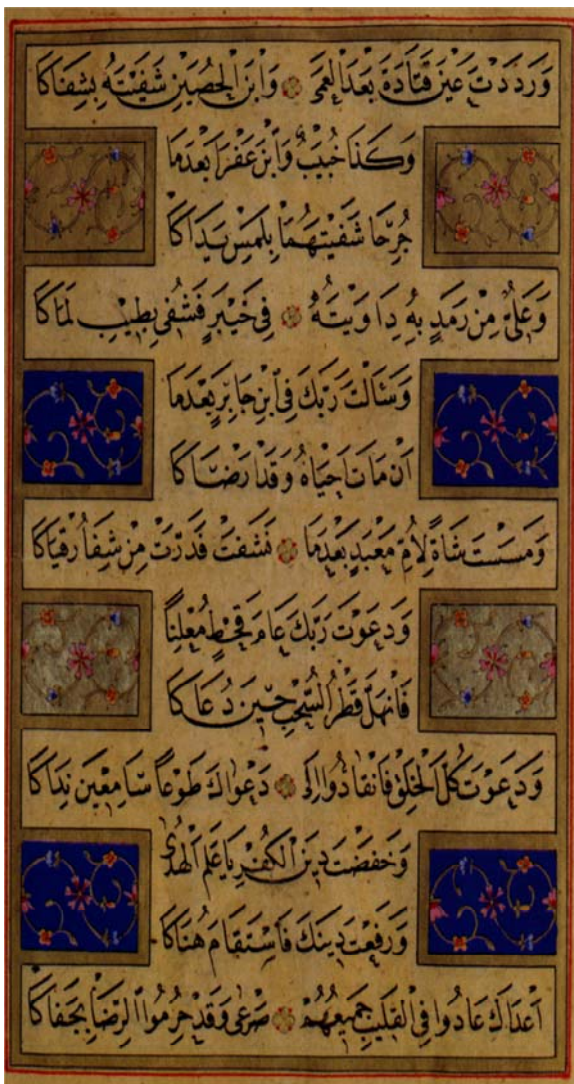 وَرَدَدْتَ عَيْنَ قَتَادَةَ بَعْدَ العَمَى وَابْنَ الحُصَيْنِ شَفَيْتَهُ بِشِفَاكَا
وَكَذَا خُبَيْبٌ وَابْنَ عَفْرَا بَعْدَمَا
جُرِحَا شَفَيْتَهُمَا بِلَمْسِ يَدَاكَا
وَعَلِيٌّ مِنْ رَمَدٍ بِهِ دَاوَيْتَهُ فِي خَيْبَرٍ فَشُفِي بِطِيبِ لَمَاكَا
وَسَأَلْتَ رَبَّكَ فِي ابْنِ جَابِرٍ بَعْدَمَا
أَنْ مَاتَ اَحْيَاهُ وَقَدْ اَرْضَاكَا
وَمَسَسْتَ شَاةً لِأُمِّ مَعْبَدٍ بَعْدَمَا نَشَفَتْ فَدَرَّتْ مِنْ شِفَا رُقْيَاكَا
وَدَعَوْتَ رَبَّكَ عَامَ قَحْطٍ مُعْلِنًا
فَانْهَلَّ قَطْرُ السُّحْبِ حِينَ دُعَاكَا
وَدَعَوْتَ كُلَّ الْخَلْقِ فَانْقَادُوا إِلَى دَعْوَاكَ طَوْعًا سَامِعِينَ نِدَاكَا
وَخَفَضْتَ دِينَ الْكُفْرِ يَا عَلَمَ الْهُدَى
وَرَفَعْتَ دِينَكَ فَاسْتَقَامَ هُنَاكَا
اَعْدَاكَ عَادُوا فِي الْقَلِيبِ جَمِيعُهُمْ صَرْعَى وَقَدْ حُرِمُوا الرِّضَا بِجَفَاكَا